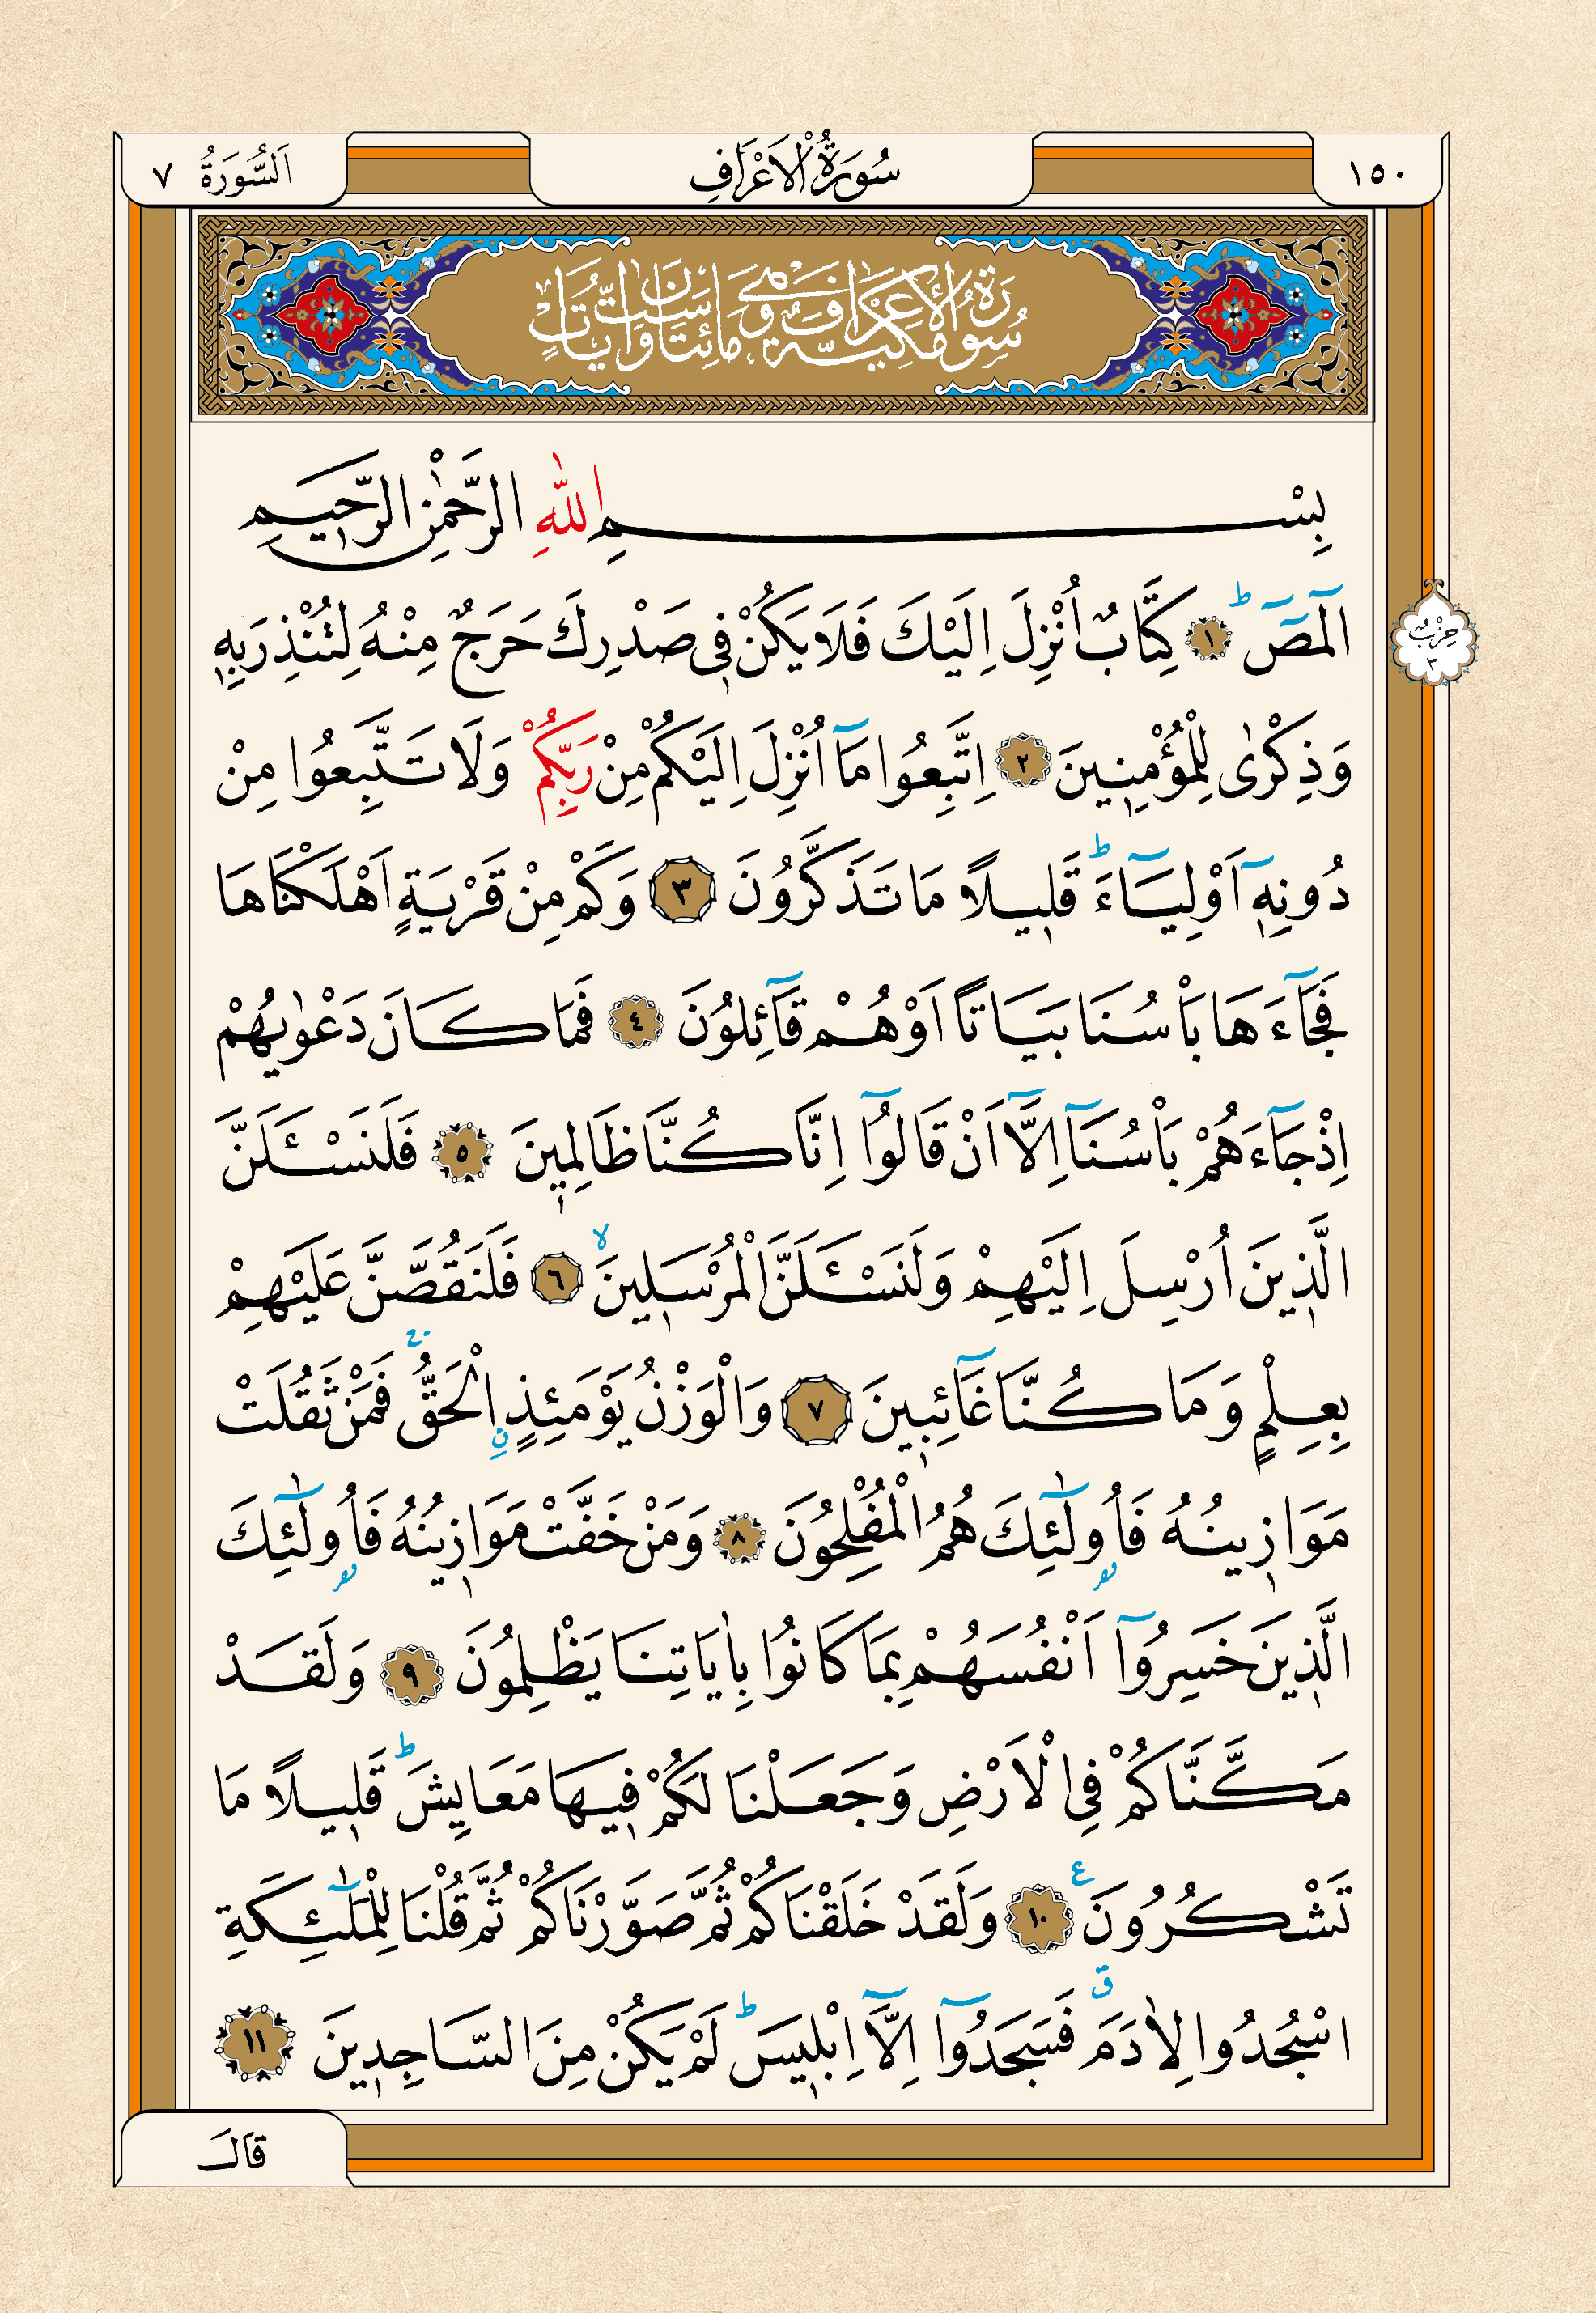 ١٥٠
سُورَةُ الْاَعْرَافِ
اَلسُّورَةُ ٧
سُورَةُ الْاَعْرَافِ مَكِّيَّةٌ وَهِيَ مِائَتَانِ وَسِتُّ اٰيَاتٍ
بِسْمِ اللّٰهِ الرَّحْمٰنِ الرَّحٖيمِ
الٓمٓصٓ ۜ ط ﴿١﴾ كِتَابٌ اُنْزِلَ اِلَيْكَ فَلَا يَكُنْ فٖي صَدْرِكَ حَرَجٌ مِنْهُ لِتُنْذِرَ بِهٖ
حِزْبٌ ٣
وَذِكْرٰى لِلْمُؤْمِنٖينَ ﴿٢﴾ اِتَّبِعُوا مَٓا اُنْزِلَ اِلَيْكُمْ مِنْ رَبِّكُمْ وَلَا تَتَّبِعُوا مِنْ
دُونِهٖٓ اَوْلِيَٓاءَ ط قَلٖيلًا مَا تَذَكَّرُونَ ﴿٣﴾ وَكَمْ مِنْ قَرْيَةٍ اَهْلَكْنَاهَا
فَجَٓاءَهَا بَاْسُنَا بَيَاتًا اَوْ هُمْ قَٓائِلُونَ ﴿٤﴾ فَمَا كَانَ دَعْوٰيهُمْ
اِذْ جَٓاءَهُمْ بَاْسُنَٓا اِلَّٓا اَنْ قَالُٓوا اِنَّا كُنَّا ظَالِمٖينَ ﴿٥﴾ فَلَنَسْـَٔلَنَّ
الَّذٖينَ اُرْسِلَ اِلَيْهِمْ وَلَنَسْـَٔلَنَّ الْمُرْسَلٖينَ لا ﴿٦﴾ فَلَنَقُصَّنَّ عَلَيْهِمْ
بِعِلْمٍ وَمَا كُنَّا غَٓائِبٖينَ ﴿٧﴾ وَالْوَزْنُ يَوْمَئِذٍنِ الْحَقُّ ج فَمَنْ ثَقُلَتْ
مَوَازٖينُهُ فَاُو۬لٰٓئِكَ هُمُ الْمُفْلِحُونَ ﴿٨﴾ وَمَنْ خَفَّتْ مَوَازٖينُهُ فَاُو۬لٰٓئِكَ
الَّذٖينَ خَسِرُٓوا اَنْفُسَهُمْ بِمَا كَانُوا بِاٰيَاتِنَا يَظْلِمُونَ ﴿٩﴾ وَلَقَدْ
مَكَّنَّاكُمْ فِي الْاَرْضِ وَجَعَلْنَا لَكُمْ فٖيهَا مَعَايِشَ ط قَلٖيلًا مَا
تَشْكُرُونَ ع ﴿١٠﴾ وَلَقَدْ خَلَقْنَاكُمْ ثُمَّ صَوَّرْنَاكُمْ ثُمَّ قُلْنَا لِلْمَلٰٓئِكَةِ
اسْجُدُوا لِاٰدَمَ ق فَسَجَدُٓوا اِلَّٓا اِبْلٖيسَ ط لَمْ يَكُنْ مِنَ السَّاجِدٖينَ ﴿١١﴾
قَالَ